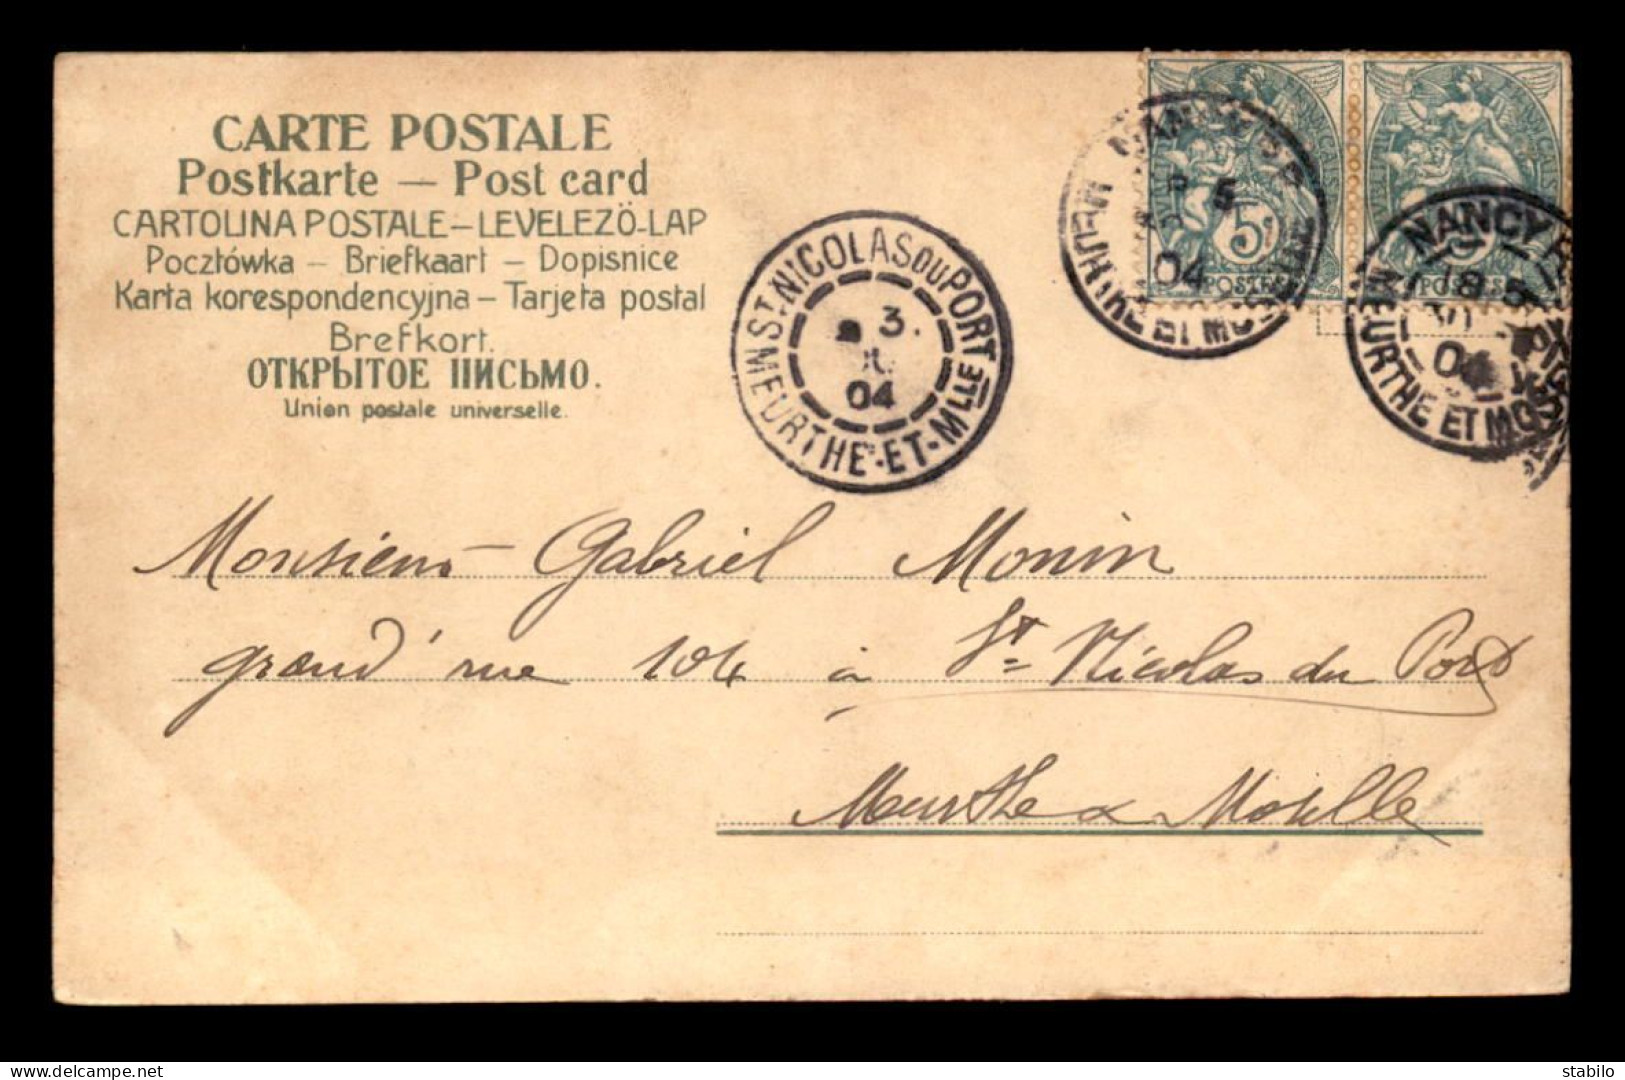 CARTE POSTALE
Postkarte — Post card
CARTOLINA POSTALE – LEVELEZÖ-LAP
Pocztówka – Briefkaart – Dopisnice
Karta korespondencyjna – Tarjeta postal
Brefkort.
ОТКРЫТОЕ ПИСЬМО.
Union postale universelle.
ST NICOLAS DU PORT
3.
04
MEURTHE-ET-MLLE
NANCY
5
04
MEURTHE ET MOSELLE
5c
POSTES
NANCY
18
5
04
MEURTHE ET MOS
POSTES
Monsieur Gabriel Monin
grand'rue 104 à St Nicolas du Port
Meurthe & Moselle
delcampe.net
stabilo